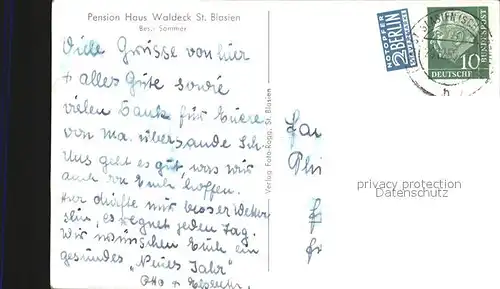 Pension Haus Waldeck St. Blasien
Bes.: Sommer
Viele Grüsse von hier
+ alles Gute sowie
vielen Dank für Euere
von Ma. übersande
Uns geht es gut, was wir
auch von Euch hoffen.
Hier dürfte nur besser Wetter
sein, es regnet jeden Tag.
Wir wünschen Euch ein
gesundes „Neues Jahr"
Otto +
Verlag Foto-Rogg, St. Blasien
NOTOPFER
2 BERLIN
STEUERMARKE
ST. BLASIEN
10
DEUTSCHE
BUNDESPOST
Fam
Phi
privacy protection
Datenschutz